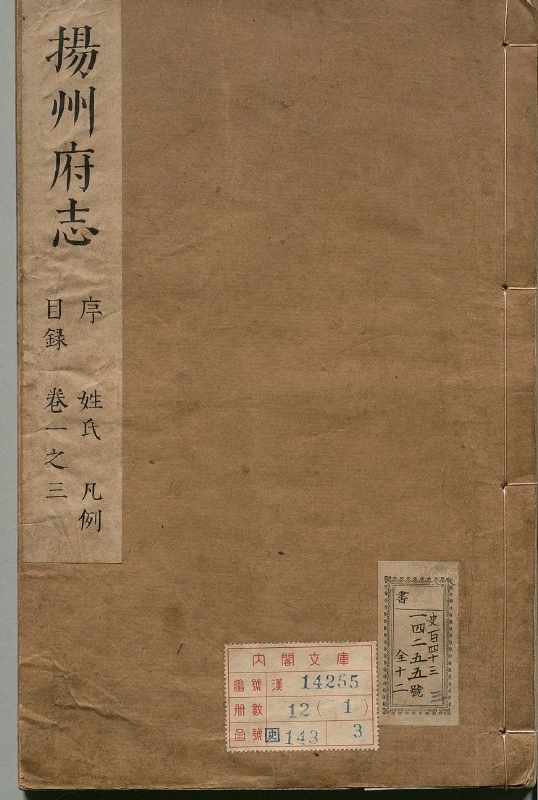 揚州府志
序 姓氏 凡例
目録 卷一之三
書
史百四十三
一四二五五號
全十二
三
內閣文庫
番號 漢 14255
冊數 12(1)
函號 史 143 3